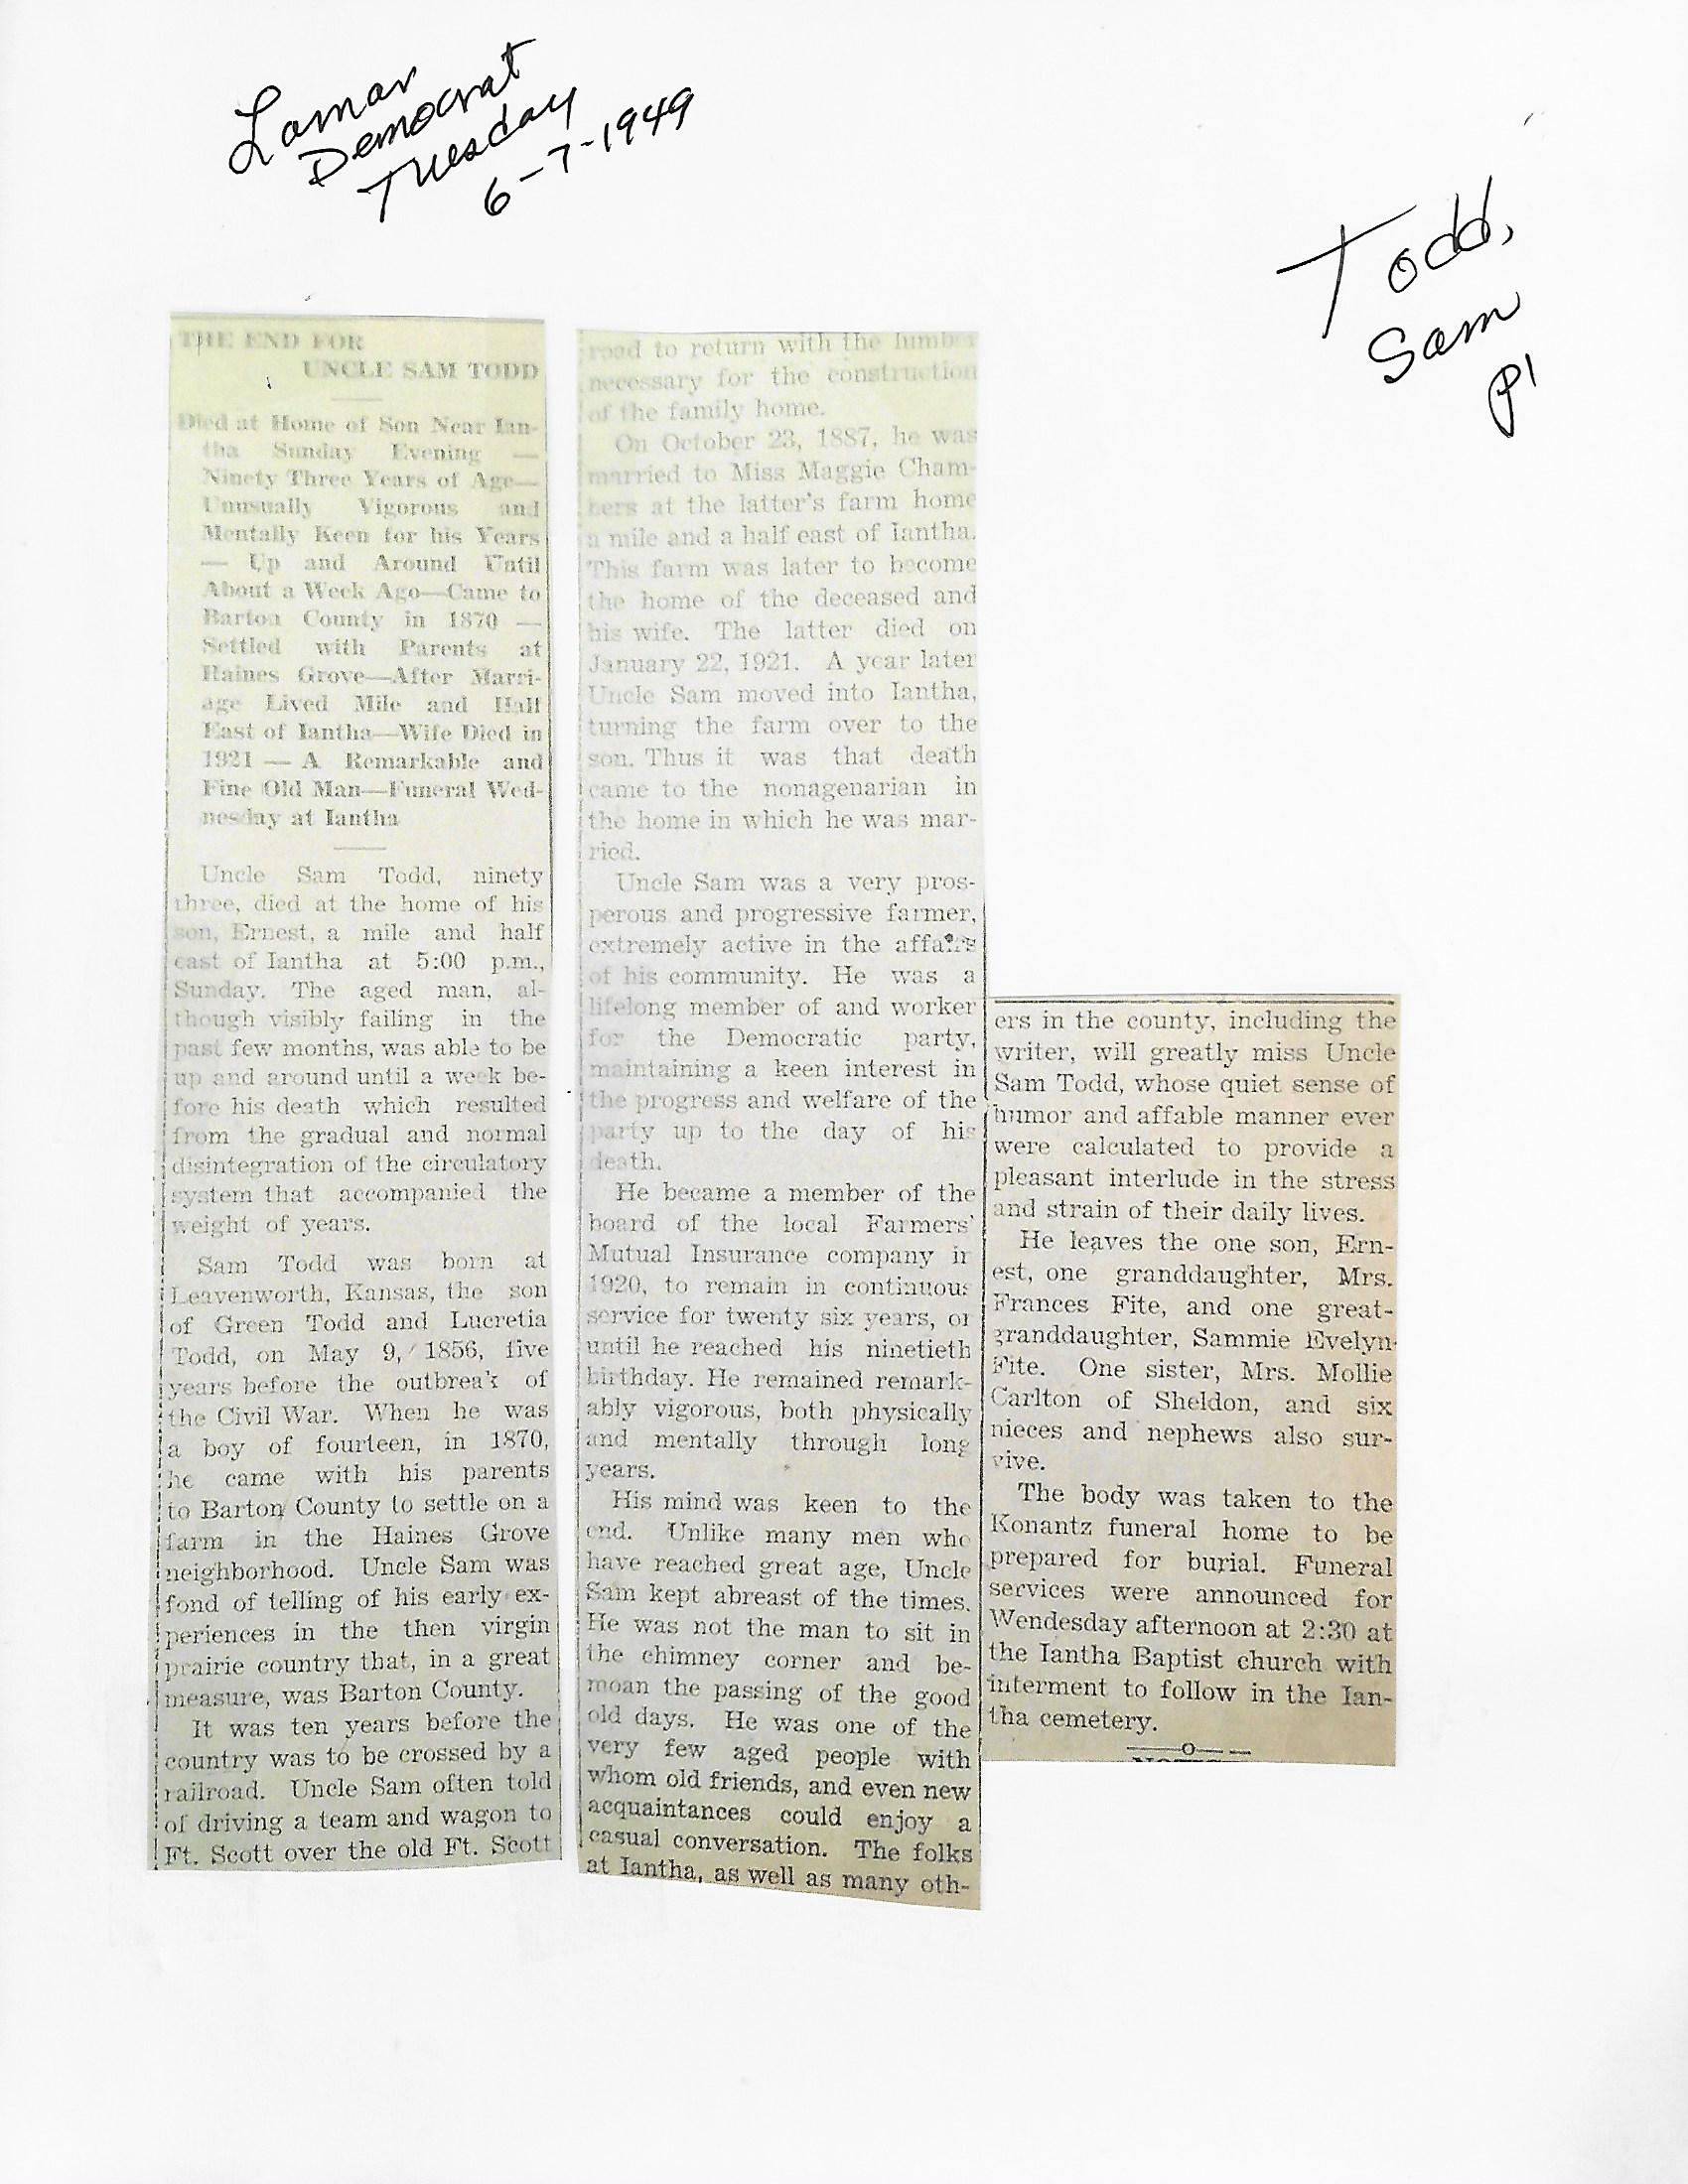 Lamar
Democrat
Tuesday
6-7-1949
Todd,
Sam
P1
THE END FOR
UNCLE SAM TODD
Died at Home of Son Near Ian-
tha Sunday Evening —
Ninety Three Years of Age—
Unusually Vigorous and
Mentally Keen for his Years
— Up and Around Until
About a Week Ago—Came to
Barton County in 1870 —
Settled with Parents at
Haines Grove—After Marri-
age Lived Mile and Half
East of Iantha—Wife Died in
1921 — A Remarkable and
Fine Old Man—Funeral Wed-
nesday at Iantha
Uncle Sam Todd, ninety
three, died at the home of his
son, Ernest, a mile and half
east of Iantha at 5:00 p.m.,
Sunday. The aged man, al-
though visibly failing in the
past few months, was able to be
up and around until a week be-
fore his death which resulted
from the gradual and normal
disintegration of the circulatory
system that accompanied the
weight of years.
Sam Todd was born at
Leavenworth, Kansas, the son
of Green Todd and Lucretia
Todd, on May 9, 1856, five
years before the outbreak of
the Civil War. When he was
a boy of fourteen, in 1870,
he came with his parents
to Barton County to settle on a
farm in the Haines Grove
neighborhood. Uncle Sam was
fond of telling of his early ex-
periences in the then virgin
prairie country that, in a great
measure, was Barton County.
It was ten years before the
country was to be crossed by a
railroad. Uncle Sam often told
of driving a team and wagon to
Ft. Scott over the old Ft. Scott
road to return with the lumber
necessary for the construction
of the family home.
On October 23, 1887, he was
married to Miss Maggie Cham-
bers at the latter's farm home
a mile and a half east of Iantha.
This farm was later to become
the home of the deceased and
his wife. The latter died on
January 22, 1921. A year later
Uncle Sam moved into Iantha,
turning the farm over to the
son. Thus it was that death
came to the nonagenarian in
the home in which he was mar-
ried.
Uncle Sam was a very pros-
perous and progressive farmer,
extremely active in the affairs
of his community. He was a
lifelong member of and worker
for the Democratic party,
maintaining a keen interest in
the progress and welfare of the
party up to the day of his
death.
He became a member of the
board of the local Farmers'
Mutual Insurance company in
1920, to remain in continuous
service for twenty six years, or
until he reached his ninetieth
birthday. He remained remark-
ably vigorous, both physically
and mentally through long
years.
His mind was keen to the
end. Unlike many men who
have reached great age, Uncle
Sam kept abreast of the times.
He was not the man to sit in
the chimney corner and be-
moan the passing of the good
old days. He was one of the
very few aged people with
whom old friends, and even new
acquaintances could enjoy a
casual conversation. The folks
at Iantha, as well as many oth-
ers in the county, including the
writer, will greatly miss Uncle
Sam Todd, whose quiet sense of
humor and affable manner ever
were calculated to provide a
pleasant interlude in the stress
and strain of their daily lives.
He leaves the one son, Ern-
est, one granddaughter, Mrs.
Frances Fite, and one great-
granddaughter, Sammie Evelyn
Fite. One sister, Mrs. Mollie
Carlton of Sheldon, and six
nieces and nephews also sur-
vive.
The body was taken to the
Konantz funeral home to be
prepared for burial. Funeral
services were announced for
Wendesday afternoon at 2:30 at
the Iantha Baptist church with
interment to follow in the Ian-
tha cemetery.